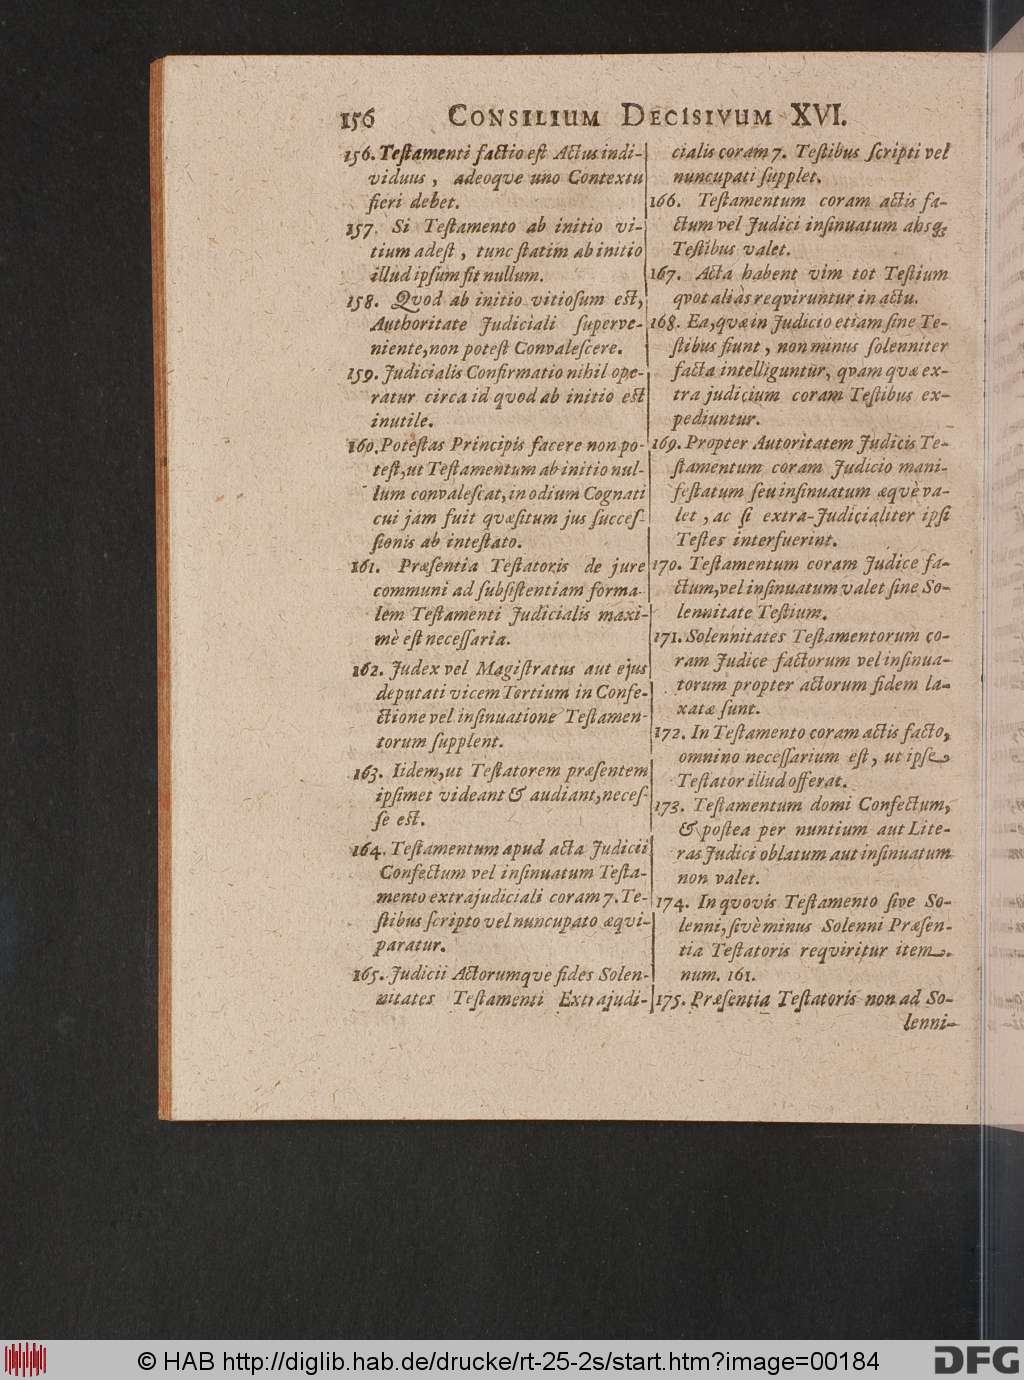 156 CONSILIUM DECISIVUM XVI.
156. Teſtamenti factio eſt Actus indi-
viduus, adeoqve uno Contextu
fieri debet.
157. Si Teſtamento ab initio vi-
tium adeſt, tunc ſtatim ab initio
illud ipſum fit nullum.
158. Qvod ab initio vitioſum eſt,
Authoritate Judiciali ſuperve-
niente, non poteſt Convaleſcere.
159. Judicialis Confirmatio nihil ope-
ratur circa id qvod ab initio eſt
inutile.
160. Poteſtas Principis facere non po-
teſt, ut Teſtamentum ab initio nul-
lum convaleſcat, in odium Cognati
cui jam fuit qvæſitum jus ſucceſ-
ſionis ab inteſtato.
161. Præſentia Teſtatoris de jure
communi ad ſubſiſtentiam forma-
lem Teſtamenti Judicialis maxi-
mè eſt neceſſaria.
162. Judex vel Magiſtratus aut ejus
deputati vicem Tertium in Confe-
ctione vel inſinuatione Teſtamen-
torum ſupplent.
163. Iidem, ut Teſtatorem præſentem
ipſimet videant & audiant, neceſ-
ſe eſt.
164. Teſtamentum apud acta Judicii
Confectum vel inſinuatum Teſta-
mento extrajudiciali coram 7. Te-
ſtibus ſcripto vel nuncupato æqvi-
paratur.
165. Judicii Actorumqve fides Solen-
nitates Teſtamenti Extrajudi-
cialis coram 7. Teſtibus ſcripti vel
nuncupati ſupplet.
166. Teſtamentum coram actis fa-
ctum vel Judici inſinuatum absq;
Teſtibus valet.
167. Acta habent vim tot Teſtium
qvot aliàs reqviruntur in actu.
168. Ea, qvæ in Judicio etiam ſine Te-
ſtibus fiunt, non minus ſolenniter
facta intelliguntur, qvam qvæ ex-
tra judicium coram Teſtibus ex-
pediuntur.
169. Propter Autoritatem Judicis Te-
ſtamentum coram Judicio mani-
feſtatum ſeu inſinuatum æqvè va-
let, ac ſi extra-Judicialiter ipſi
Teſtes interfuerint.
170. Teſtamentum coram Judice fa-
ctum, vel inſinuatum valet ſine So-
lennitate Teſtium.
171. Solennitates Teſtamentorum co-
ram Judice factorum vel inſinua-
torum propter actorum fidem la-
xatæ ſunt.
172. In Teſtamento coram actis facto,
omnino neceſſarium eſt, ut ipſe
Teſtator illud offerat.
173. Teſtamentum domi Confectum,
& poſtea per nuntium aut Lite-
ras Judici oblatum aut inſinuatum
non valet.
174. In qvovis Teſtamento ſive So-
lenni, ſivè minus Solenni Præſen-
tia Teſtatoris reqviritur item.
num. 161.
175. Præſentia Teſtatoris non ad So-
lenni-
© HAB http://diglib.hab.de/drucke/rt-25-2s/start.htm?image=00184
DFG